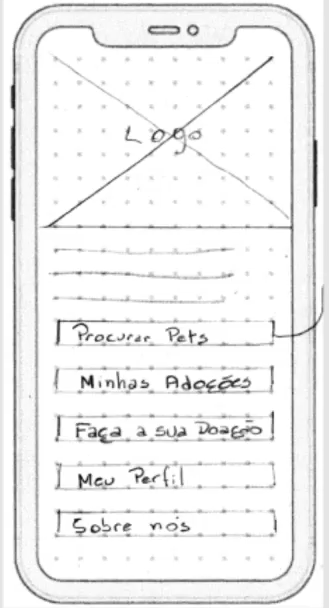 Logo
Procurar Pets
Minhas Adoções
Faça a sua Doação
Meu Perfil
Sobre nós